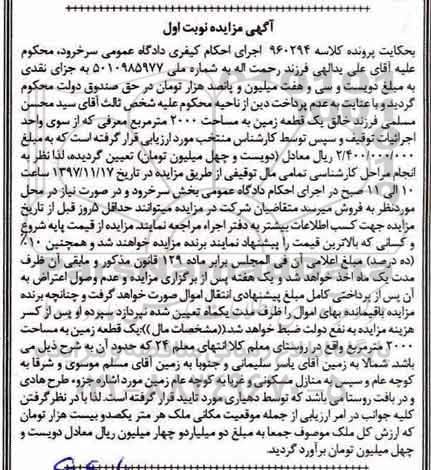 آگهی مزایده نوبت اول
بحکایت پرونده کلاسه ۹۶۰۲۹۴ اجرای احکام کیفری دادگاه عمومی سرخرود، محکوم
علیه آقای علی یدالهی فرزند رحمت اله به شماره ملی ۵۰۱۰۹۸۵۹۷۷ به جزای نقدی
به مبلغ دویست و سی و هفت میلیون و پانصد هزار تومان در حق صندوق دولت محکوم
گردید و با عنایت به عدم پرداخت دین از ناحیه محکوم علیه شخص ثالث آقای سید محسن
مسلمی فرزند خالق یک قطعه زمین به مساحت ۲۰۰۰ مترمربع معرفی که از سوی واحد
اجرائیات توقیف و سپس توسط کارشناس منتخب مورد ارزیابی قرار گرفته است که به مبلغ
۲/۴۰۰/۰۰۰/۰۰۰ ریال معادل (دویست و چهل میلیون تومان) تعیین گردیده، لذا نظر به
انجام مراحل کارشناسی تمامی مال توقیفی از طریق مزایده در تاریخ ۱۳۹۷/۱۱/۱۷ ساعت
۱۰ الی ۱۱ صبح در اجرای احکام دادگاه عمومی بخش سرخرود و در صورت نیاز در محل
موردنظر به فروش میرسد متقاضیان شرکت در مزایده میتوانند حداقل ۵روز قبل از تاریخ
مزایده جهت کسب اطلاعات بیشتر به دفتر اجراء مراجعه نمایند مزایده از قیمت پایه شروع
و کسانی که بالاترین قیمت را پیشنهاد نمایند برنده مزایده خواهند شد و همچنین ۱۰٪
(ده درصد) مبلغ اعلامی آن فی المجلس برابر ماده ۱۲۹ قانون مذکور و مابقی آن ظرف
مدت یک ماه اخذ خواهد شد و یک هفته پس از برگزاری مزایده و عدم وصول اعتراض به
آن پس از پرداختی کامل مبلغ پیشنهادی انتقال اموال صورت خواهد گرفت و چنانچه برنده
مزایده باقیمانده بهای اموال را ظرف مدت یکماه تعیین شده نپردازد سپرده او پس از کسر
هزینه مزایده به نفع دولت ضبط خواهد شد.((مشخصات مال)):یک قطعه زمین به مساحت
۲۰۰۰ مترمربع واقع در روستای معلم کلا انتهای معلم ۲۴ که حدود آن به شرح ذیل می
باشد. شمالا به زمین آقای یاسر سلیمانی و جنوبا به زمین آقای مسلم موسوی و شرقا به
کوچه عام و سپس به منازل مسکونی و غربا به کوچه عام زمین مورد اشاره جزوه طرح هادی
و در بافت روستا می باشد که توسط دهیاری مورد تایید قرار گرفته است. لذا با در نظر گرفتن
کلیه جوانب در امر ارزیابی از جمله موقعیت مکانی ملک هر متر یکصدو بیست هزار تومان
که ارزش کل ملک موصوف جمعا به مبلغ دو میلیاردو چهار میلیون ریال معادل دویست و
چهل میلیون تومان برآورد گردید.